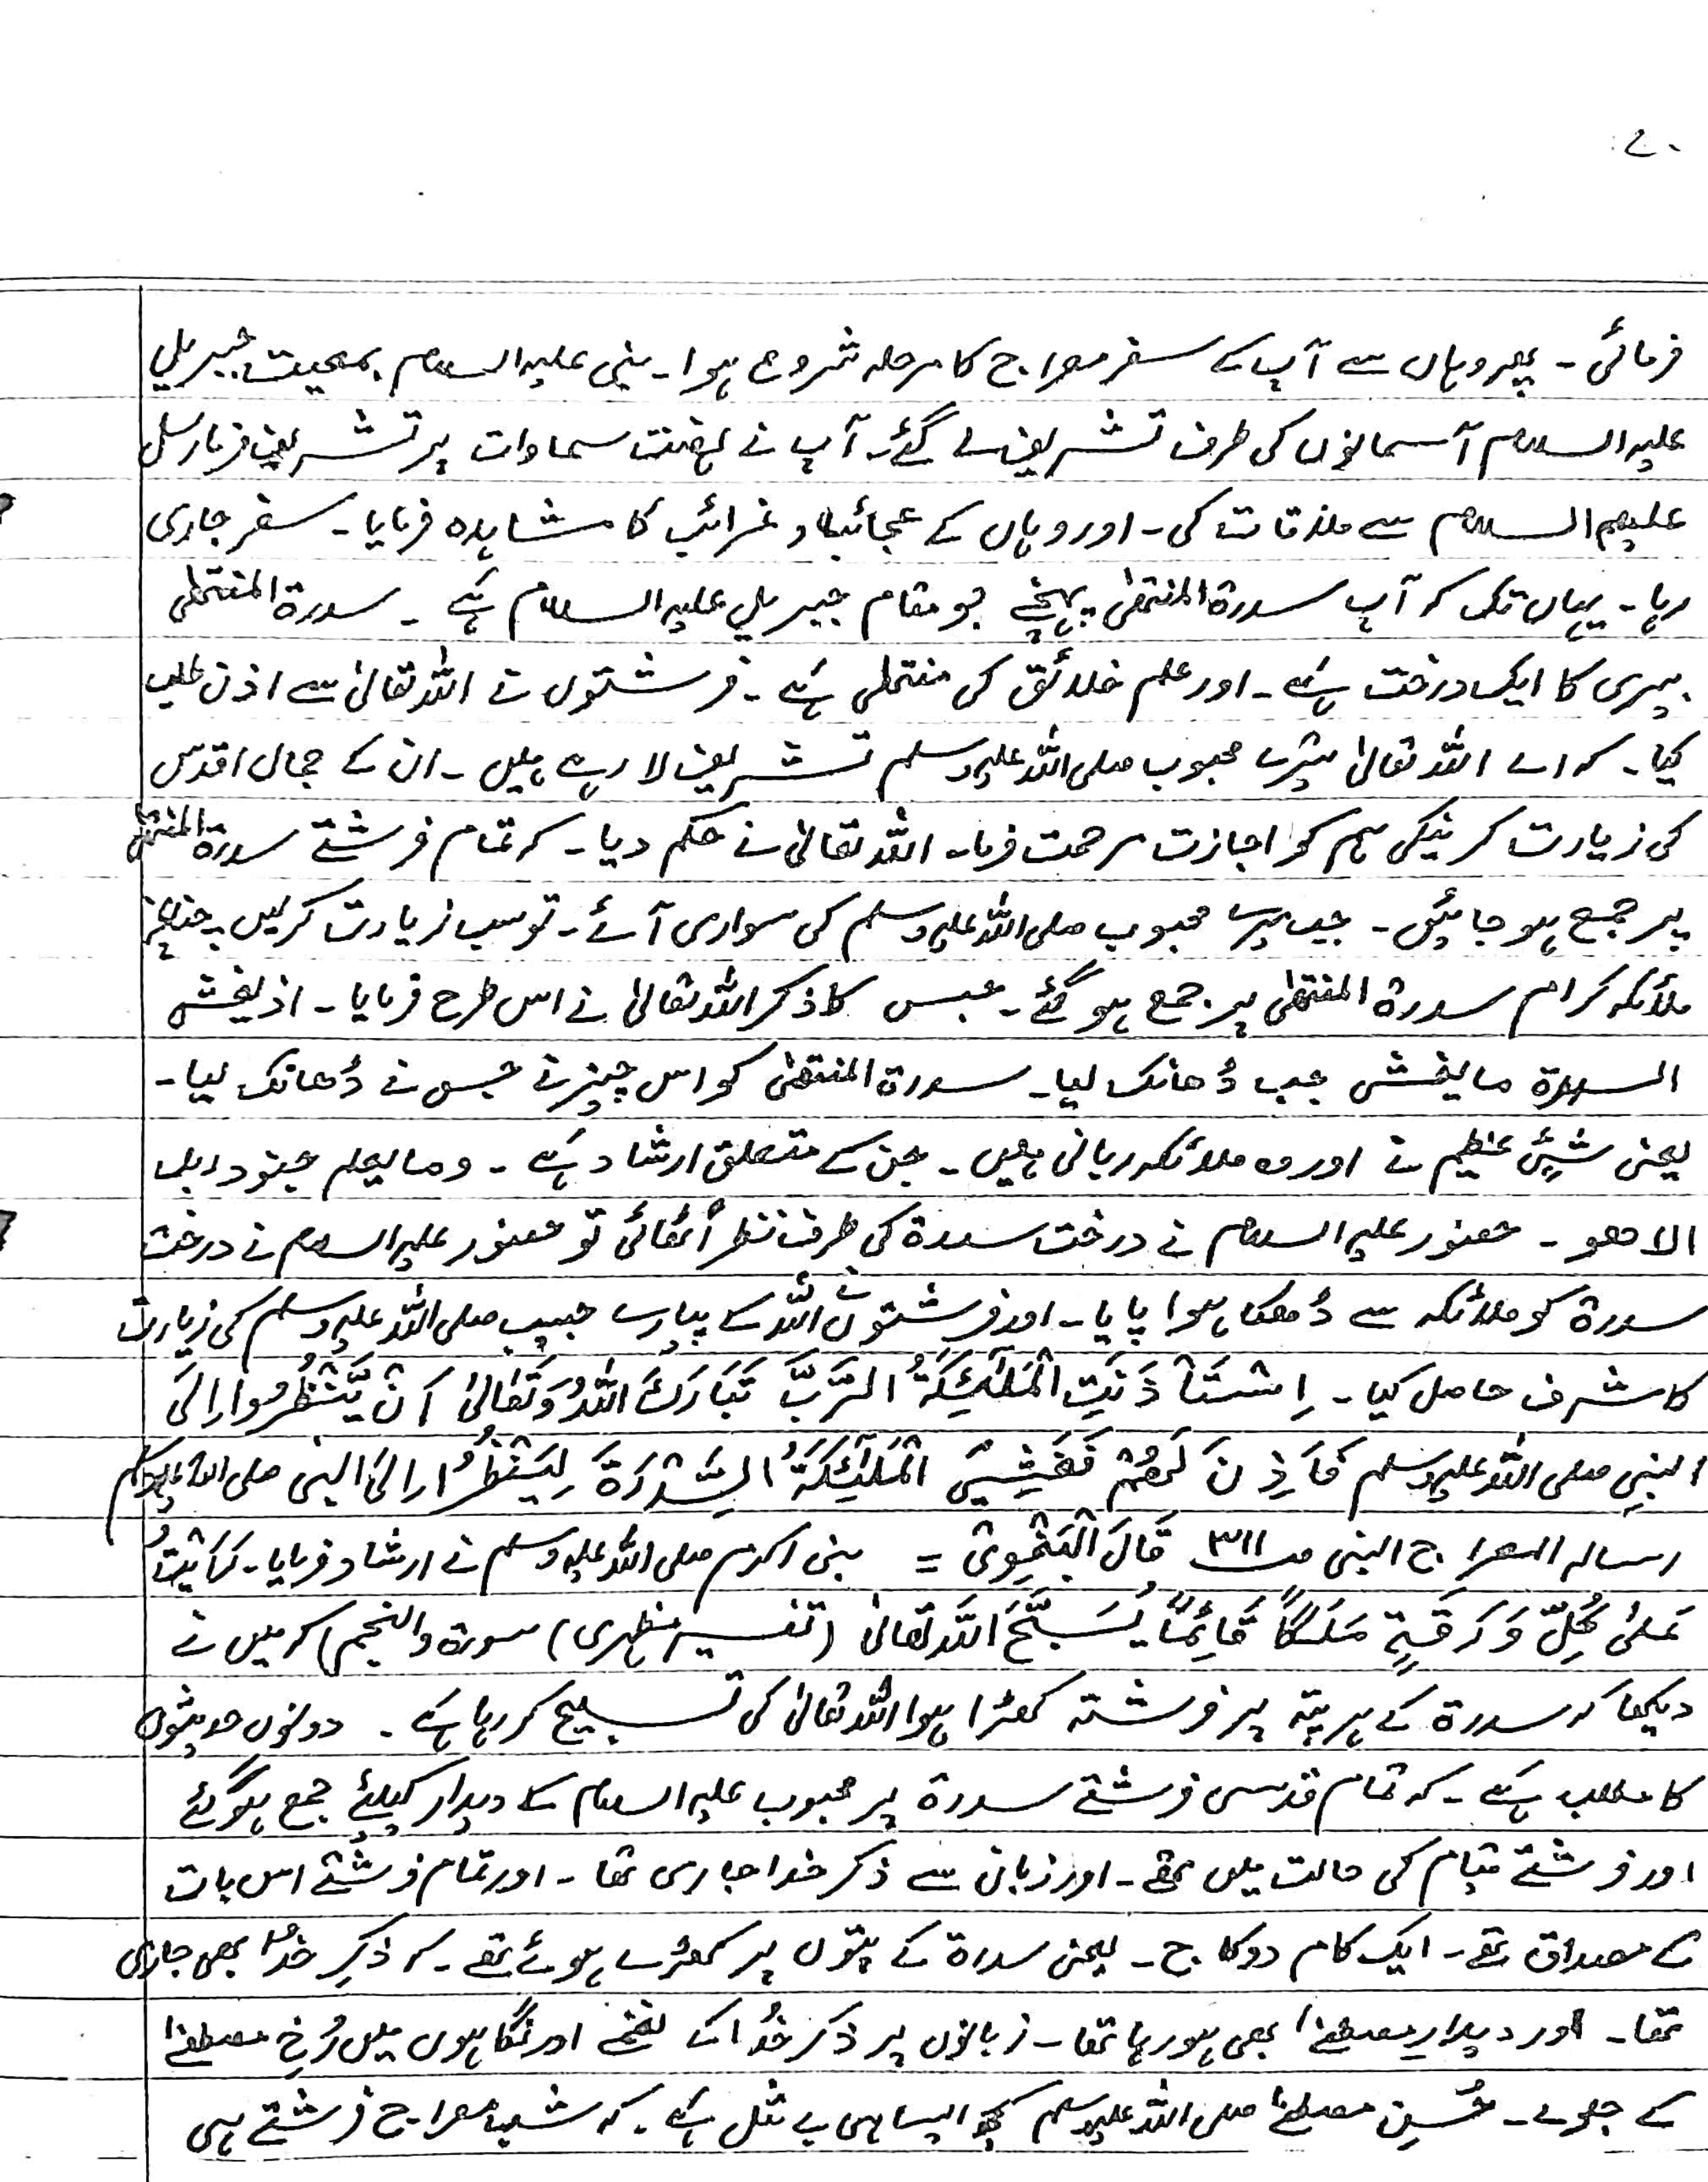 ۷۰
فرمائی ۔ پھر وہاں سے آپ کے سفر معراج کا مرحلہ شروع ہوا ۔ نبی علیہ السلام بمعیت جبریل
علیہ السلام آسمانوں کی طرف تشریف لے گئے ۔ آپ نے ہفت سماوات پر تشریف فرما رسل
علیہم السلام سے ملاقات کی ۔ اور وہاں کے عجائبات و غرائب کا مشاہدہ فرمایا ۔ سفر جاری
رہا ۔ یہاں تک کہ آپ سدرۃ المنتھٰی پہنچے جو مقام جبریل علیہ السلام ہے ۔ سدرۃ المنتھٰی
بیری کا ایک درخت ہے ۔ اور علم خلائق کی منتھٰی ہے ۔ فرشتوں نے اللہ تعالیٰ سے اذن طلب
کیا ۔ کہ اے اللہ تعالیٰ تیرے محبوب صلی اللہ علیہ وسلم تشریف لا رہے ہیں ۔ ان کے جمال اقدس
کی زیارت کرنیکی ہم کو اجازت مرحمت فرما ۔ اللہ تعالیٰ نے حکم دیا ۔ کہ تمام فرشتے سدرۃ المنتھٰی
پر جمع ہو جائیں ۔ جب میرے محبوب صلی اللہ علیہ وسلم کی سواری آئے ۔ تو سب زیارت کر لیں ۔ چنانچہ
ملائکہ کرام سدرۃ المنتھٰی پر جمع ہو گئے ۔ جس کا ذکر اللہ تعالیٰ نے اس طرح فرمایا ۔ اذ یغشی
السدرۃ ما یغشی جب ڈھانک لیا ۔ سدرۃ المنتھٰی کو اس چیز نے جس نے ڈھانک لیا ۔
یعنی شیئ عظیم نے اور وہ ملائکہ ربانی ہیں ۔ جن کے متعلق ارشاد ہے ۔ وما یعلم جنود ربک
الا ھو ۔ حضور علیہ السلام نے درخت سدرۃ کی طرف نظر اُٹھائی تو حضور علیہ السلام نے درخت
سدرۃ کو ملائکہ سے ڈھکا ہوا پایا ۔ اور فرشتوں نے اللہ کے پیارے حبیب صلی اللہ علیہ وسلم کی زیارت
کا شرف حاصل کیا ۔ اِسْتَأْذَنَتِ الْمَلٰٓئِکَۃُ الرَّبَّ تَبَارَکَ اللّٰہُ وَتَعَالیٰ اَنْ یَّنْظُرُوا اِلَی
النبی صلی اللہ علیہ وسلم فَاَذِنَ لَھُمْ فَغَشِیَ الْمَلٰٓئِکَۃُ السِّدْرَۃَ لِیَنْظُرُا اِلَی النبی صلی اللہ علیہ وسلم
رسالہ المعراج النبی صـ ۳۱۱ قَالَ الْبَغْوِیْ = نبی اکرم صلی اللہ علیہ وسلم نے ارشاد فرمایا ۔ رَأَیْتُ
عَلیٰ کُلِّ وَرَقَۃٍ مَلَکًا قَائِمًا یُسَبِّحُ اللّٰہَ تَعَالیٰ (تفسیر مظہری) سورۃ والنجم) کہ میں نے
دیکھا کہ سدرۃ کے ہر پتہ پر فرشتہ کھڑا ہوا اللہ تعالیٰ کی تسبیح کر رہا ہے ۔ دونوں حدیثوں
کا مطلب ہے ۔ کہ تمام قدسی فرشتے سدرۃ پر محبوب علیہ السلام کے دیدار کیلئے جمع ہو گئے
اور فرشتے قیام کی حالت میں تھے ۔ اور زبان سے ذکر خدا جاری تھا ۔ اور تمام فرشتے اس بات
کے مصداق تھے ۔ ایک کام دو کاج ۔ یعنی سدرۃ کے پتوں پر کھڑے ہوئے تھے ۔ کہ ذکرِ خدا بھی جاری
تھا ۔ اور دیدارِ مصطفےٰ بھی ہو رہا تھا ۔ زبانوں پر ذکر خُدا کے نغمے اور نگاہوں میں رُخِ مصطفےٰ
کے جلوے ۔ حُسنِ مصطفےٰ صلی اللہ علیہ وسلم کچھ ایسا ہی بے مثل ہے ۔ کہ شب معراج فرشتے ہی